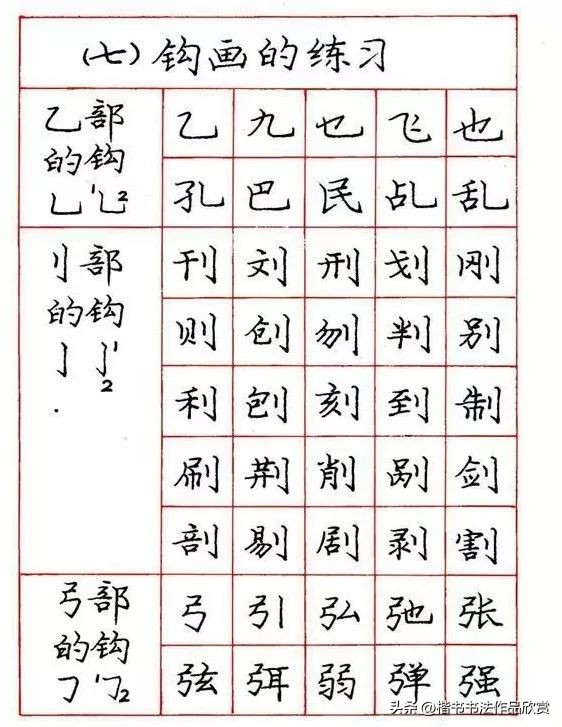 (七)钩画的练习
乙部
的钩
乚 乚12
乙 九 乜 飞 也
孔 巴 民 乩 乱
刂部
的钩
亅 亅12
刊 刘 刑 划 刚
则 创 刎 判 别
利 刨 刻 到 制
刷 荆 削 剐 剑
剖 剔 剧 剥 割
弓部
的钩
㇆ ㇆12
弓 引 弘 弛 张
弦 弭 弱 弹 强
头条 @楷书书法作品欣赏